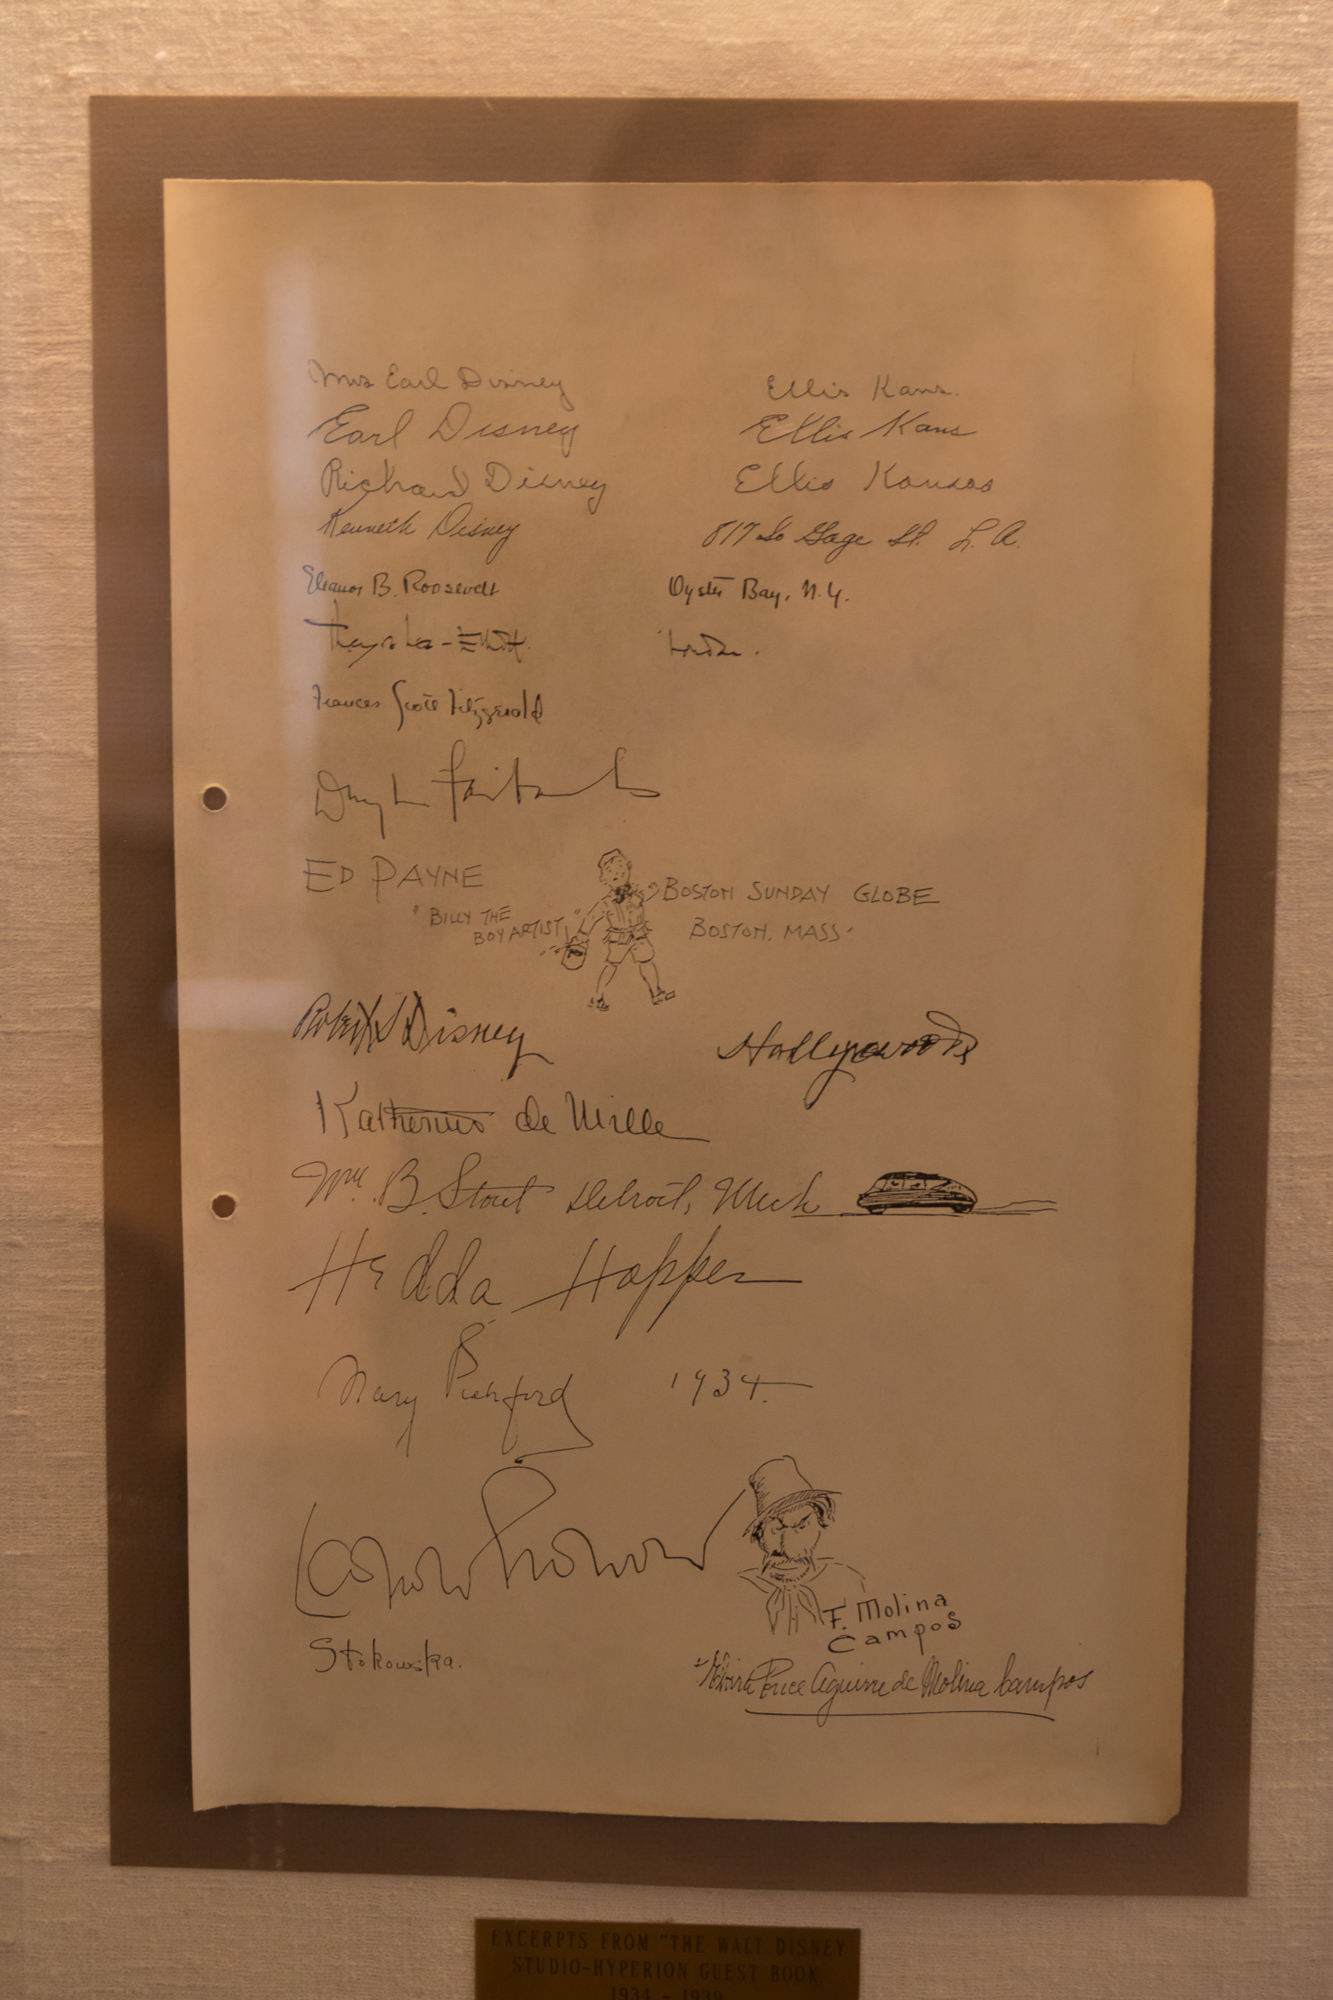 Mrs Earl Disney Ellis Kans.
Earl Disney Ellis Kans
Richard Disney Ellis Kansas
Kenneth Disney 817 So Gage St. L.A.
Eleanor B. Roosevelt Oyster Bay, N.Y.
London.
Frances Scott Fitzgerald
Douglas Fairbanks
ED PAYNE
"BILLY THE BOSTON SUNDAY GLOBE
BOY ARTIST" BOSTON. MASS.
Robert S Disney Hollywood
Katherine de Mille
Wm. B. Stout Detroit, Mich
Hedda Hopper
Mary Pickford 1934.
F. Molina
Campos
Stokowska.
Ponce Aguirre de Molina Campos
EXCERPTS FROM "THE WALT DISNEY
STUDIO-HYPERION GUEST BOOK
1934 - 1939